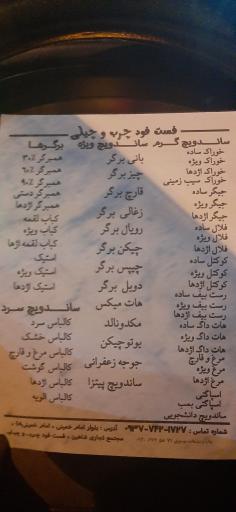 فست فود چرب و چیلی
ساندویچ گرم
خوراک ساده
خوراک ویژه
خوراک اژدها
خوراک سیب زمینی
جیگر ساده
جیگر ویژه
جیگر اژدها
فلافل ساده
فلافل ویژه
فلافل اژدها
کوکتل ساده
کوکتل ویژه
کوکتل اژدها
رست بیف ساده
رست بیف ویژه
رست بیف اژدها
هات داگ ساده
هات داگ ویژه
هات داگ اژدها
مرغ و قارچ
مرغ ویژه
مرغ اژدها
اسپاگتی
اسپاگتی بمب
ساندویچ دانشجویی
ساندویچ ویژه
بانی برگر
چیز برگر
قارچ برگر
زغالی برگر
رویال برگر
چیکن برگر
چیپس برگر
دوبل برگر
هات میکس
مکدونالد
یوتوچیکن
جوجه زعفرانی
ساندویچ پیتزا
برگرها
همبرگر ۳۰٪
همبرگر ۶۰٪
همبرگر ۹۰٪
همبرگر دستی
همبرگر اژدها
کباب لقمه
کباب ویژه
کباب لقمه اژدها
استیک
استیک ویژه
استیک اژدها
ساندویچ سرد
کالباس سرد
کالباس خشک
کالباس مرغ و قارچ
کالباس گوشت
کالباس اژدها
کالباس الویه
شماره تماس : ۰۹۳۷-۷۴۲-۱۷۲۷
آدرس : بلوار امام خمینی ، امام خمینی
مجتمع تجاری شاهین ، فست فود چرب و چیلی